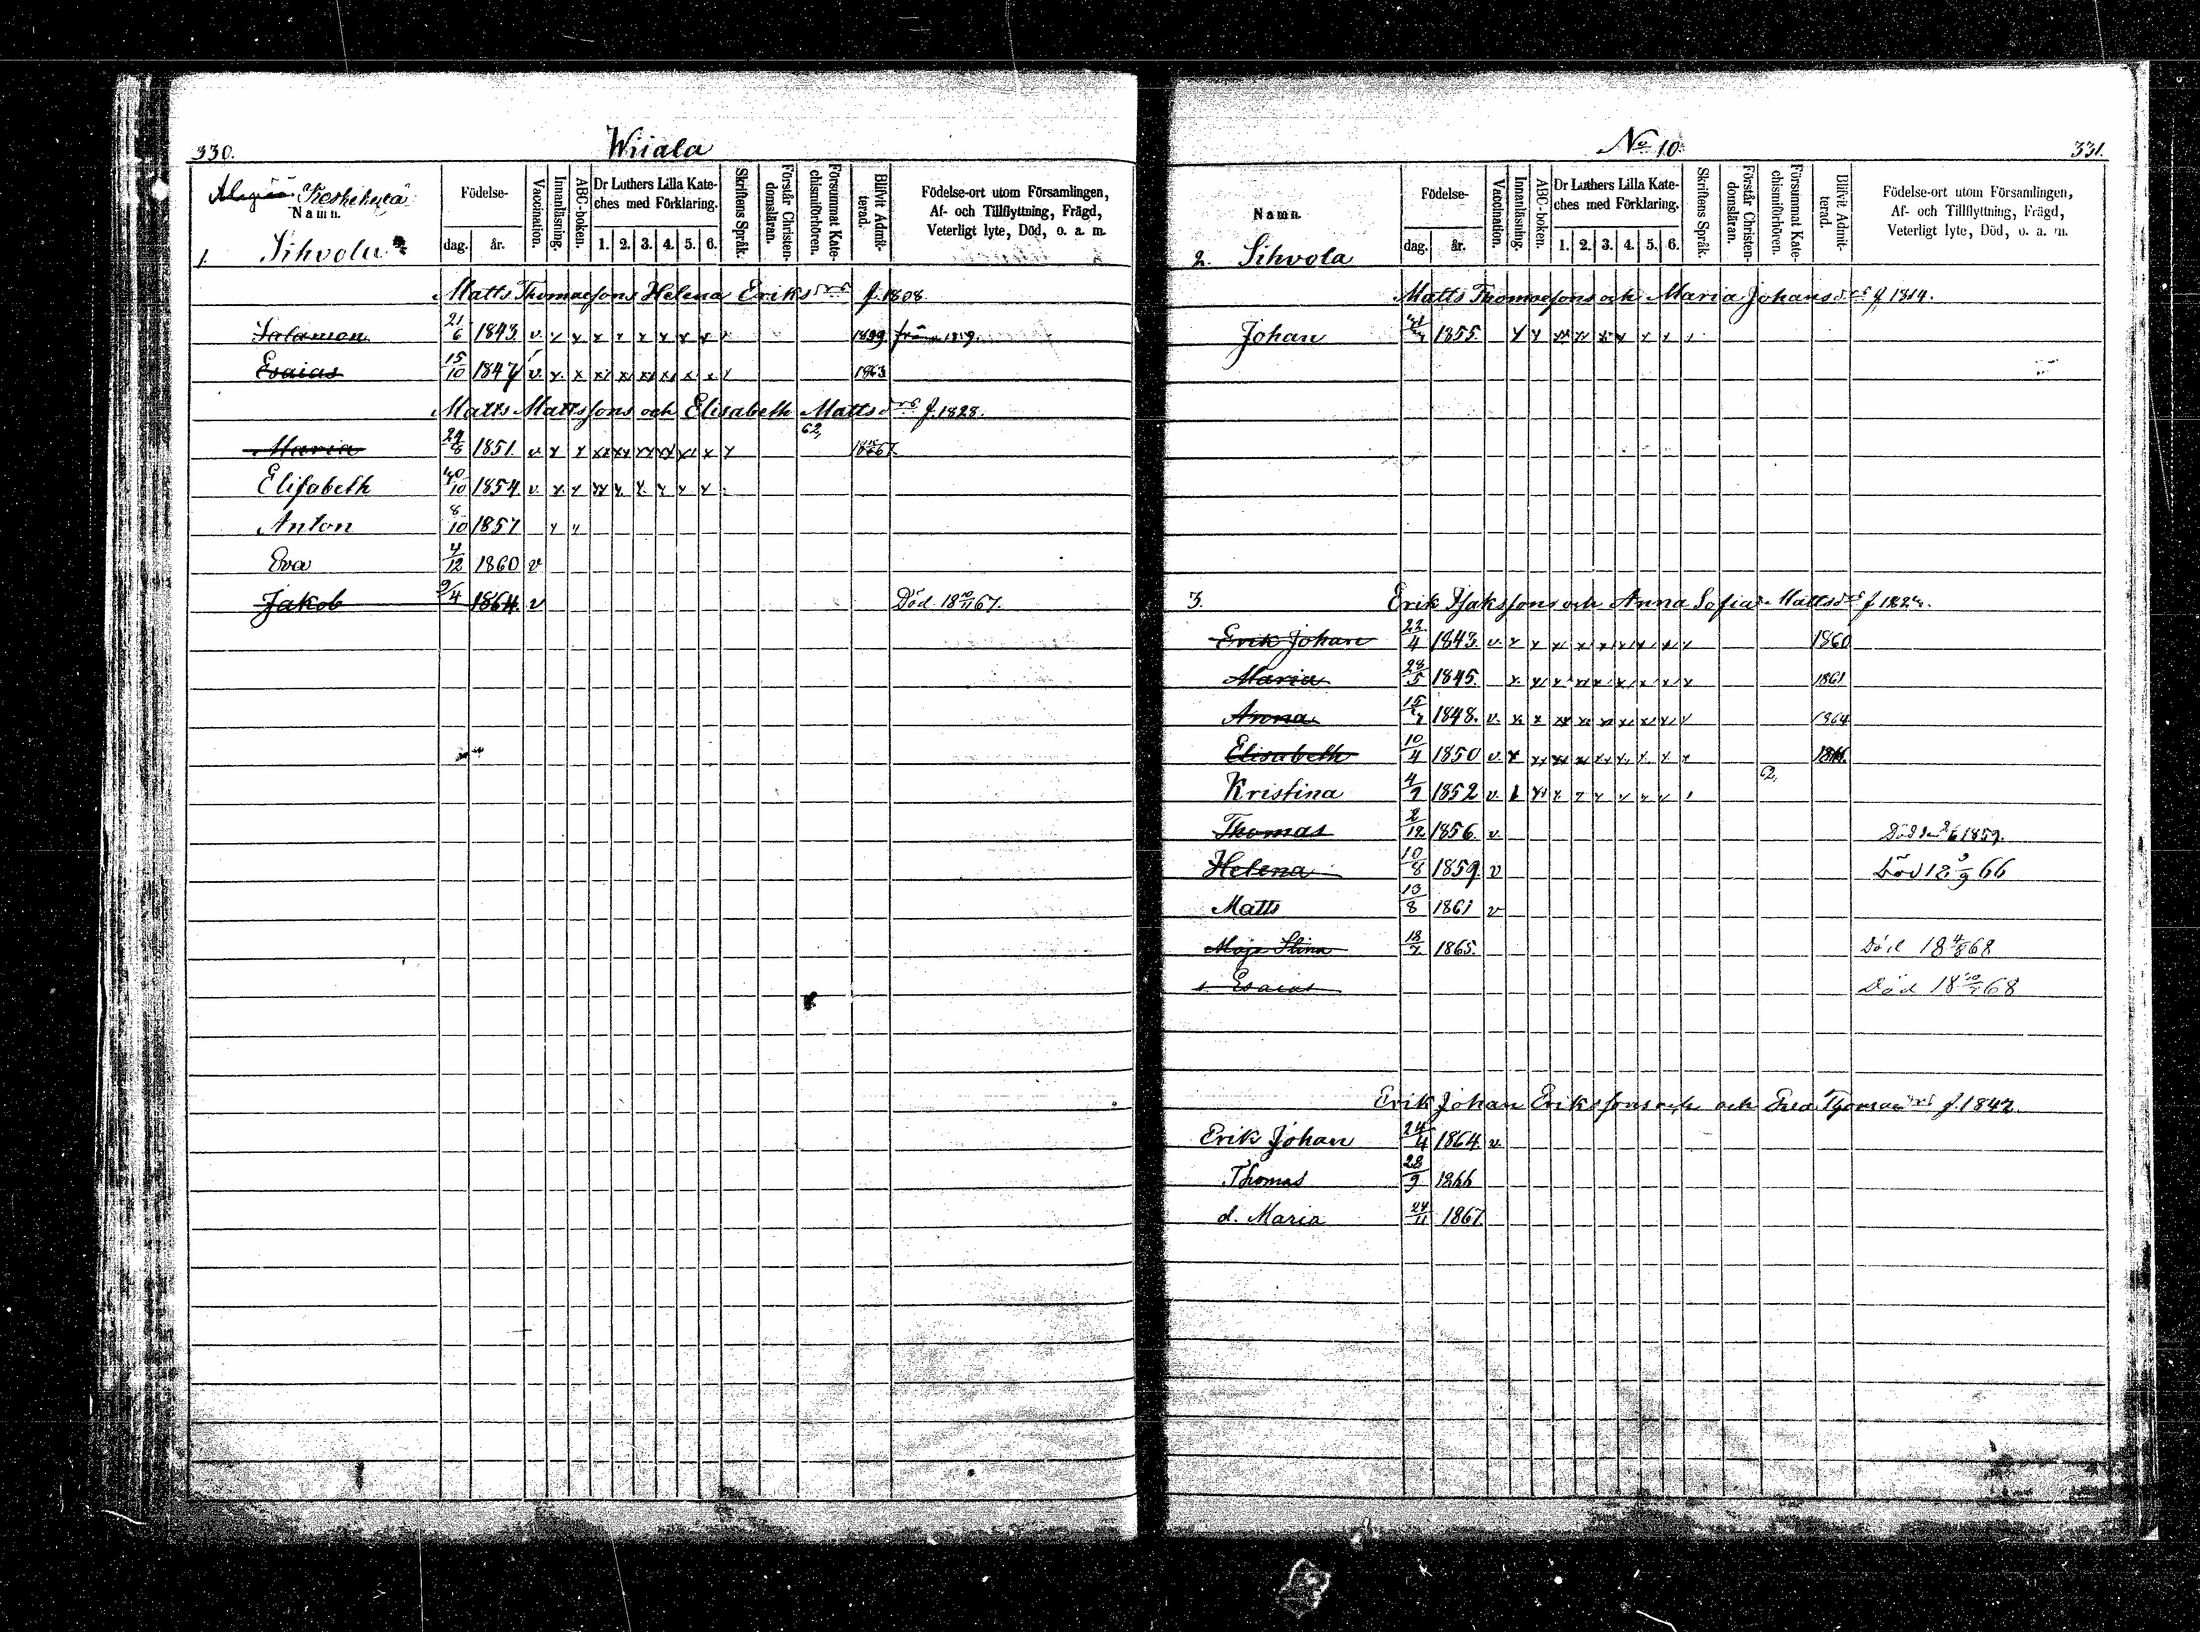 330.
Wiiala
Keskikylä
Namn.
1. Sihvola
Födelse-
dag. år.
Vaccination.
Innanläsning.
ABC-boken.
Dr Luthers Lilla Kate-
ches med Förklaring.
1. 2. 3. 4. 5. 6.
Skriftens Språk.
Förstår Christen-
domsläran.
Försummat Kate-
chismiförhören.
Blifvit Admit-
terad.
Födelse-ort utom Församlingen,
Af- och Tillflyttning, Frägd,
Veterligt lyte, Död, o. a. m.
Matts Thomaesons Helena Eriksdrs f. 1808.
Salamon 21/6 1843. v x x x x x x x x 1859
Esaias 15/10 1847 v. x. x xx x xx xx x. x x 1863
Matts Mattssons och Elisabeth Mattsdrs f. 1828.
62,
Maria 1851. v x x xx xx xx xx xx x x 1867.
Elisabeth 1854. v. x. x xx x. x. x x x
Anton 8/10 1857 x x
Eva 4/12 1860 v
Jakob 9/4 1864. v Död 18 67.
No 10.
331.
Namn.
2. Sihvola
Födelse-
dag. år.
Vaccination.
Innanläsning.
ABC-boken.
Dr Luthers Lilla Kate-
ches med Förklaring.
1. 2. 3. 4. 5. 6.
Skriftens Språk.
Förstår Christen-
domsläran.
Försummat Kate-
chismiförhören.
Blifvit Admit-
terad.
Födelse-ort utom Församlingen,
Af- och Tillflyttning, Frägd,
Veterligt lyte, Död, o. a. m.
Matts Thomaesons och Maria Johansdrs f. 1814.
Johan 1855. x x xx xx xx x x x
3. Erik Isakssons och Anna Sofia Mattsdrs f
Erik Johan 22/4 1843. v. x x x x x x x x x 1860
Maria 28/5 1845. x x x xx x x x x x 1861
Anna 1848. v. x x xx x xx x x x 1864
Elisabeth 10/4 1850 v. x xx xx xx xx x x x x
62,
Kristina 1852 v. x x x x x x x
Thomas 2/12 1856. v. Död 1859.
Helena 10/8 1859. v Död 18 9/9 66
Matts 13/8 1861 v
Maja Stina 18/7 1865. Död 18 4/8 68
s. Esaias Död 18 68
Erik Johan Erikssons och Eva Thomaedrs f. 1842.
Erik Johan 24/4 1864. v.
Thomas 28/9 1866
d. Maria 24/11 1867